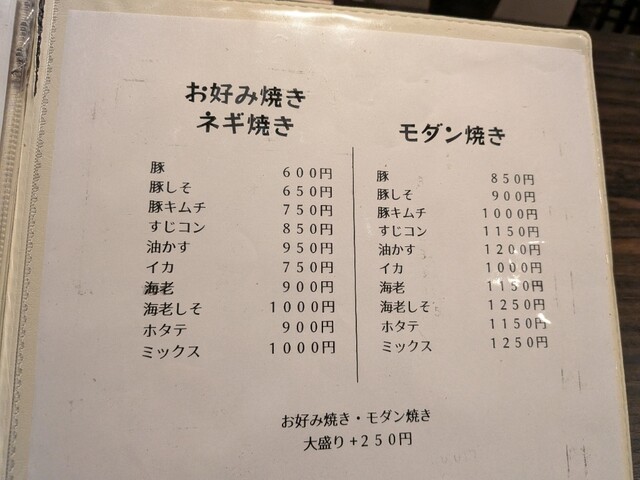 お好み焼き
ネギ焼き
豚 600円
豚しそ 650円
豚キムチ 750円
すじコン 850円
油かす 950円
イカ 750円
海老 900円
海老しそ 1000円
ホタテ 900円
ミックス 1000円
モダン焼き
豚 850円
豚しそ 900円
豚キムチ 1000円
すじコン 1150円
油かす 1200円
イカ 1000円
海老 1150円
海老しそ 1250円
ホタテ 1150円
ミックス 1250円
お好み焼き・モダン焼き
大盛り+250円